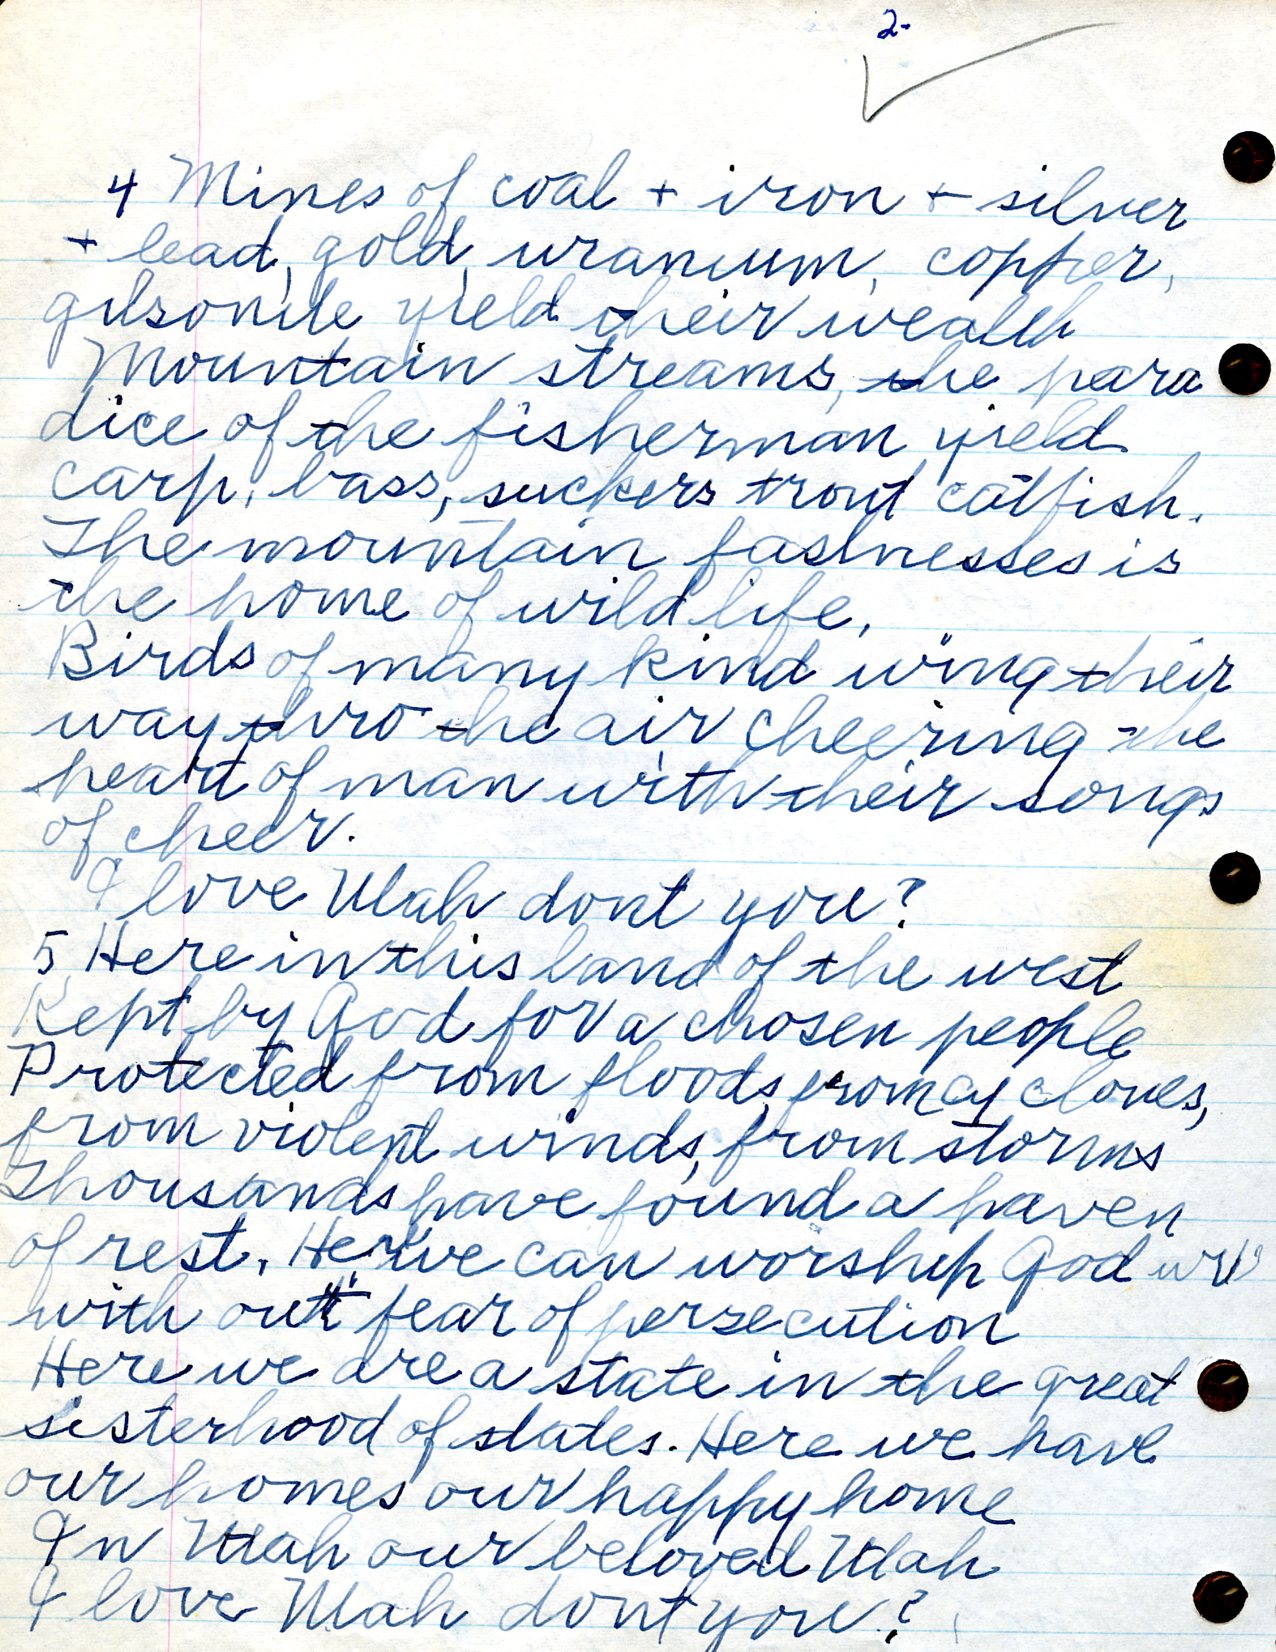 2-
4 Mines of coal + iron + silver
+ lead, gold, uranium, copper,
gilsonite yield their wealth
Mountain streams, the para
dice of the fisherman yield
carp, bass, suckers trout catfish.
The mountain fastnesses is
the home of wild life,
Birds of many kind wing their
way thro the air cheering the
heart of man with their songs
of cheer.
I love Utah dont you?
5 Here in this land of the west
Kept by God for a chosen people
Protected from floods, from cyclones,
from violent winds, from storms
Thousands have found a haven
of rest. Here we can worship God
with out fear of persecution
Here we are a state in the great
sisterhood of states. Here we have
our homes our happy home
In Utah our beloved Utah
I love Utah dont you?